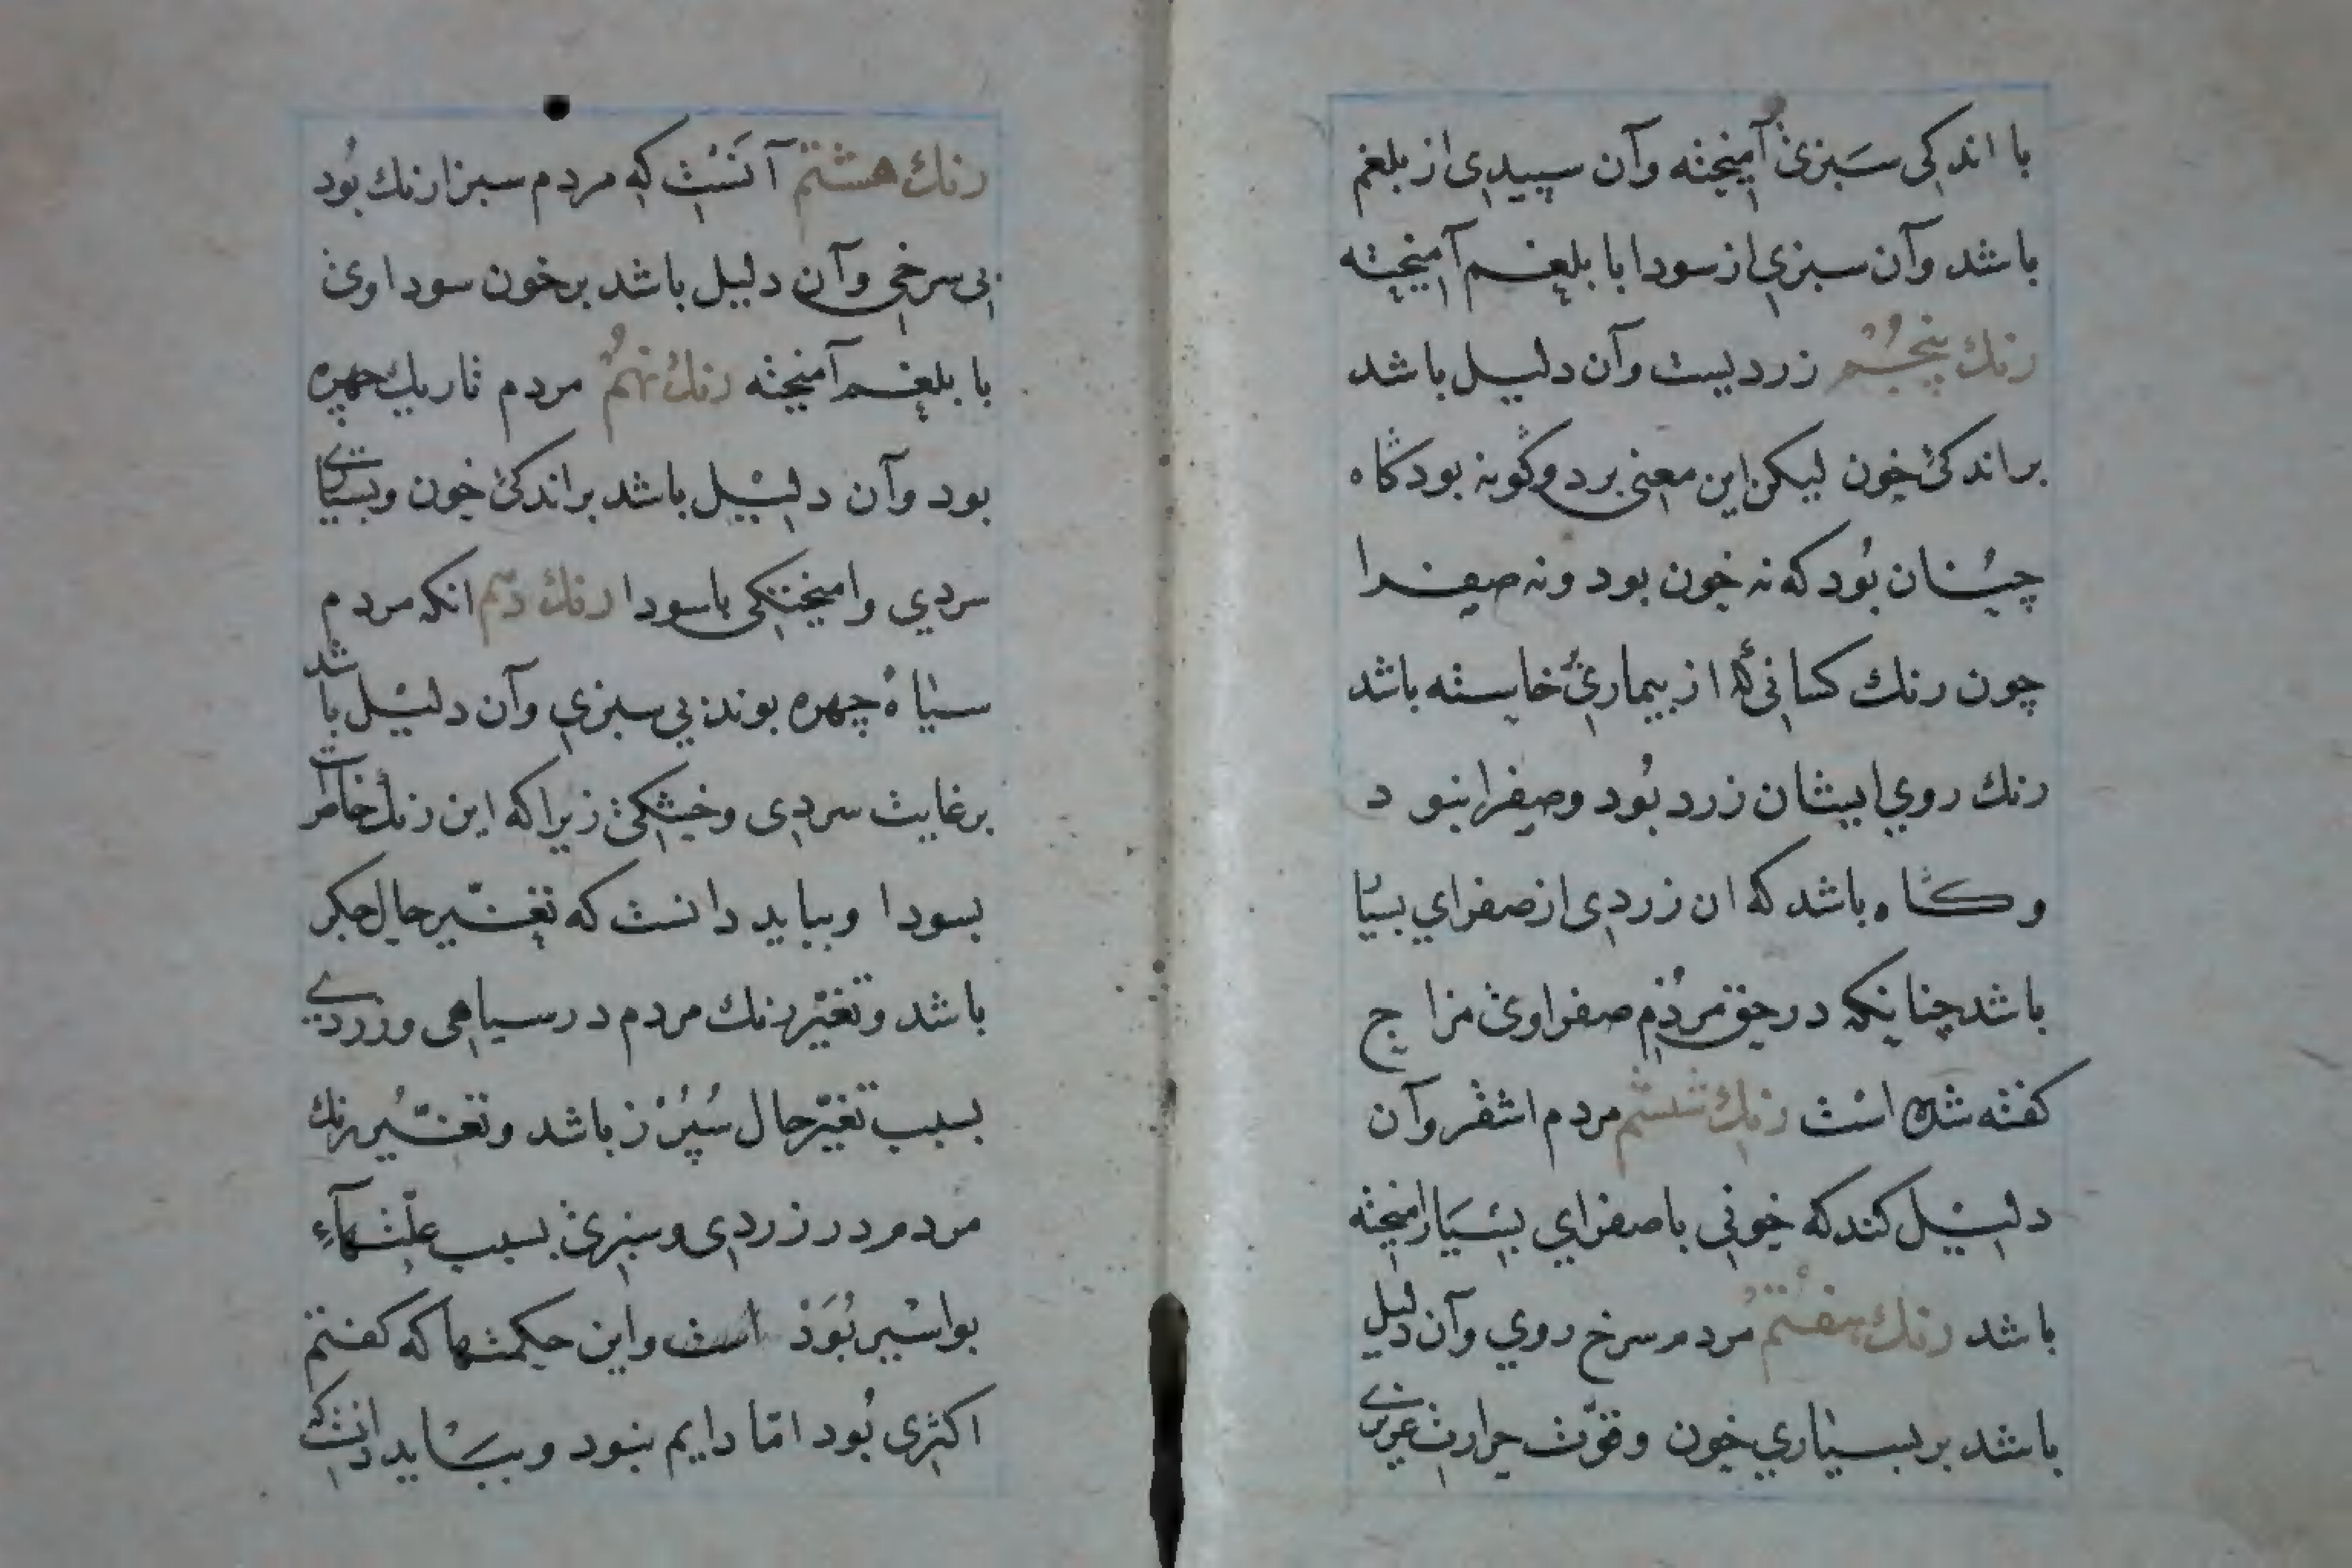 با اندکی سبزی آمیخته وآن سپیدی از بلغم
باشد وآن سبزی از سودا با بلغم آمیخته
رنك پنجم زردیست وآن دلیل باشد
بر اندکی خون لیکن این معنی بردو کونه بود کاه
چنان بود که نه خون بود ونه صفرا
چون رنك کسانی که از بیماری خاسته باشد
رنك روی ایشان زرد بود وصفرا نبود
وکاه باشد که ان زردی از صفرای بسیا
باشد چنانکه در حق مردم صفراوی مزاج
کفته شده است رنك ششم مردم اشقر وآن
دلیل کند که خونی با صفرای بسیار امیخته
باشد رنك هفتم مردم سرخ روی وآن دلیل
باشد بر بسیاری خون وقوت حرارت غریزی
رنك هشتم آنست که مردم سبز ارنك بود
بی سرخی وآن دلیل باشد بر خون سوداوی
با بلغم آمیخته رنك نهم مردم تاریك چهره
بود وآن دلیل باشد بر اندکی خون وبسیاری
سردی وامیختکی با سودا رنك دهم انکه مردم
سیاه چهره بوند بی سبزی وآن دلیل باشد
بر غایت سردی وخشکی زیرا که این رنك خاطر
بسودا وبباید دانست که تغیر حال جکر
باشد وتغیر رنك مردم در سیاهی وزردی
بسبب تغیر حال سپرز باشد وتغیر رنك
مردم در زردی وسبزی بسبب علتهاء
بواسیر بوذ است واین حکمتها که کفتم
اکثری بود اما دایم نبود وبباید دانست که